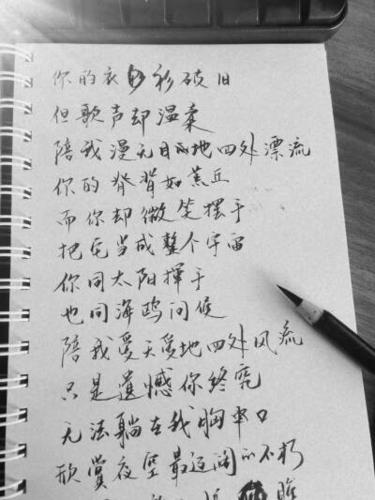 你的衣衫破旧
但歌声却温柔
陪我漫无目的地四处漂流
你的脊背如荒丘
而你却微笑摆手
把它当成整个宇宙
你同太阳揮手
也同海鸥问候
陪我爱天爱地四处风流
只是遺憾你终究
无法躺在我胸口
欣赏夜空最辽阔的不朽